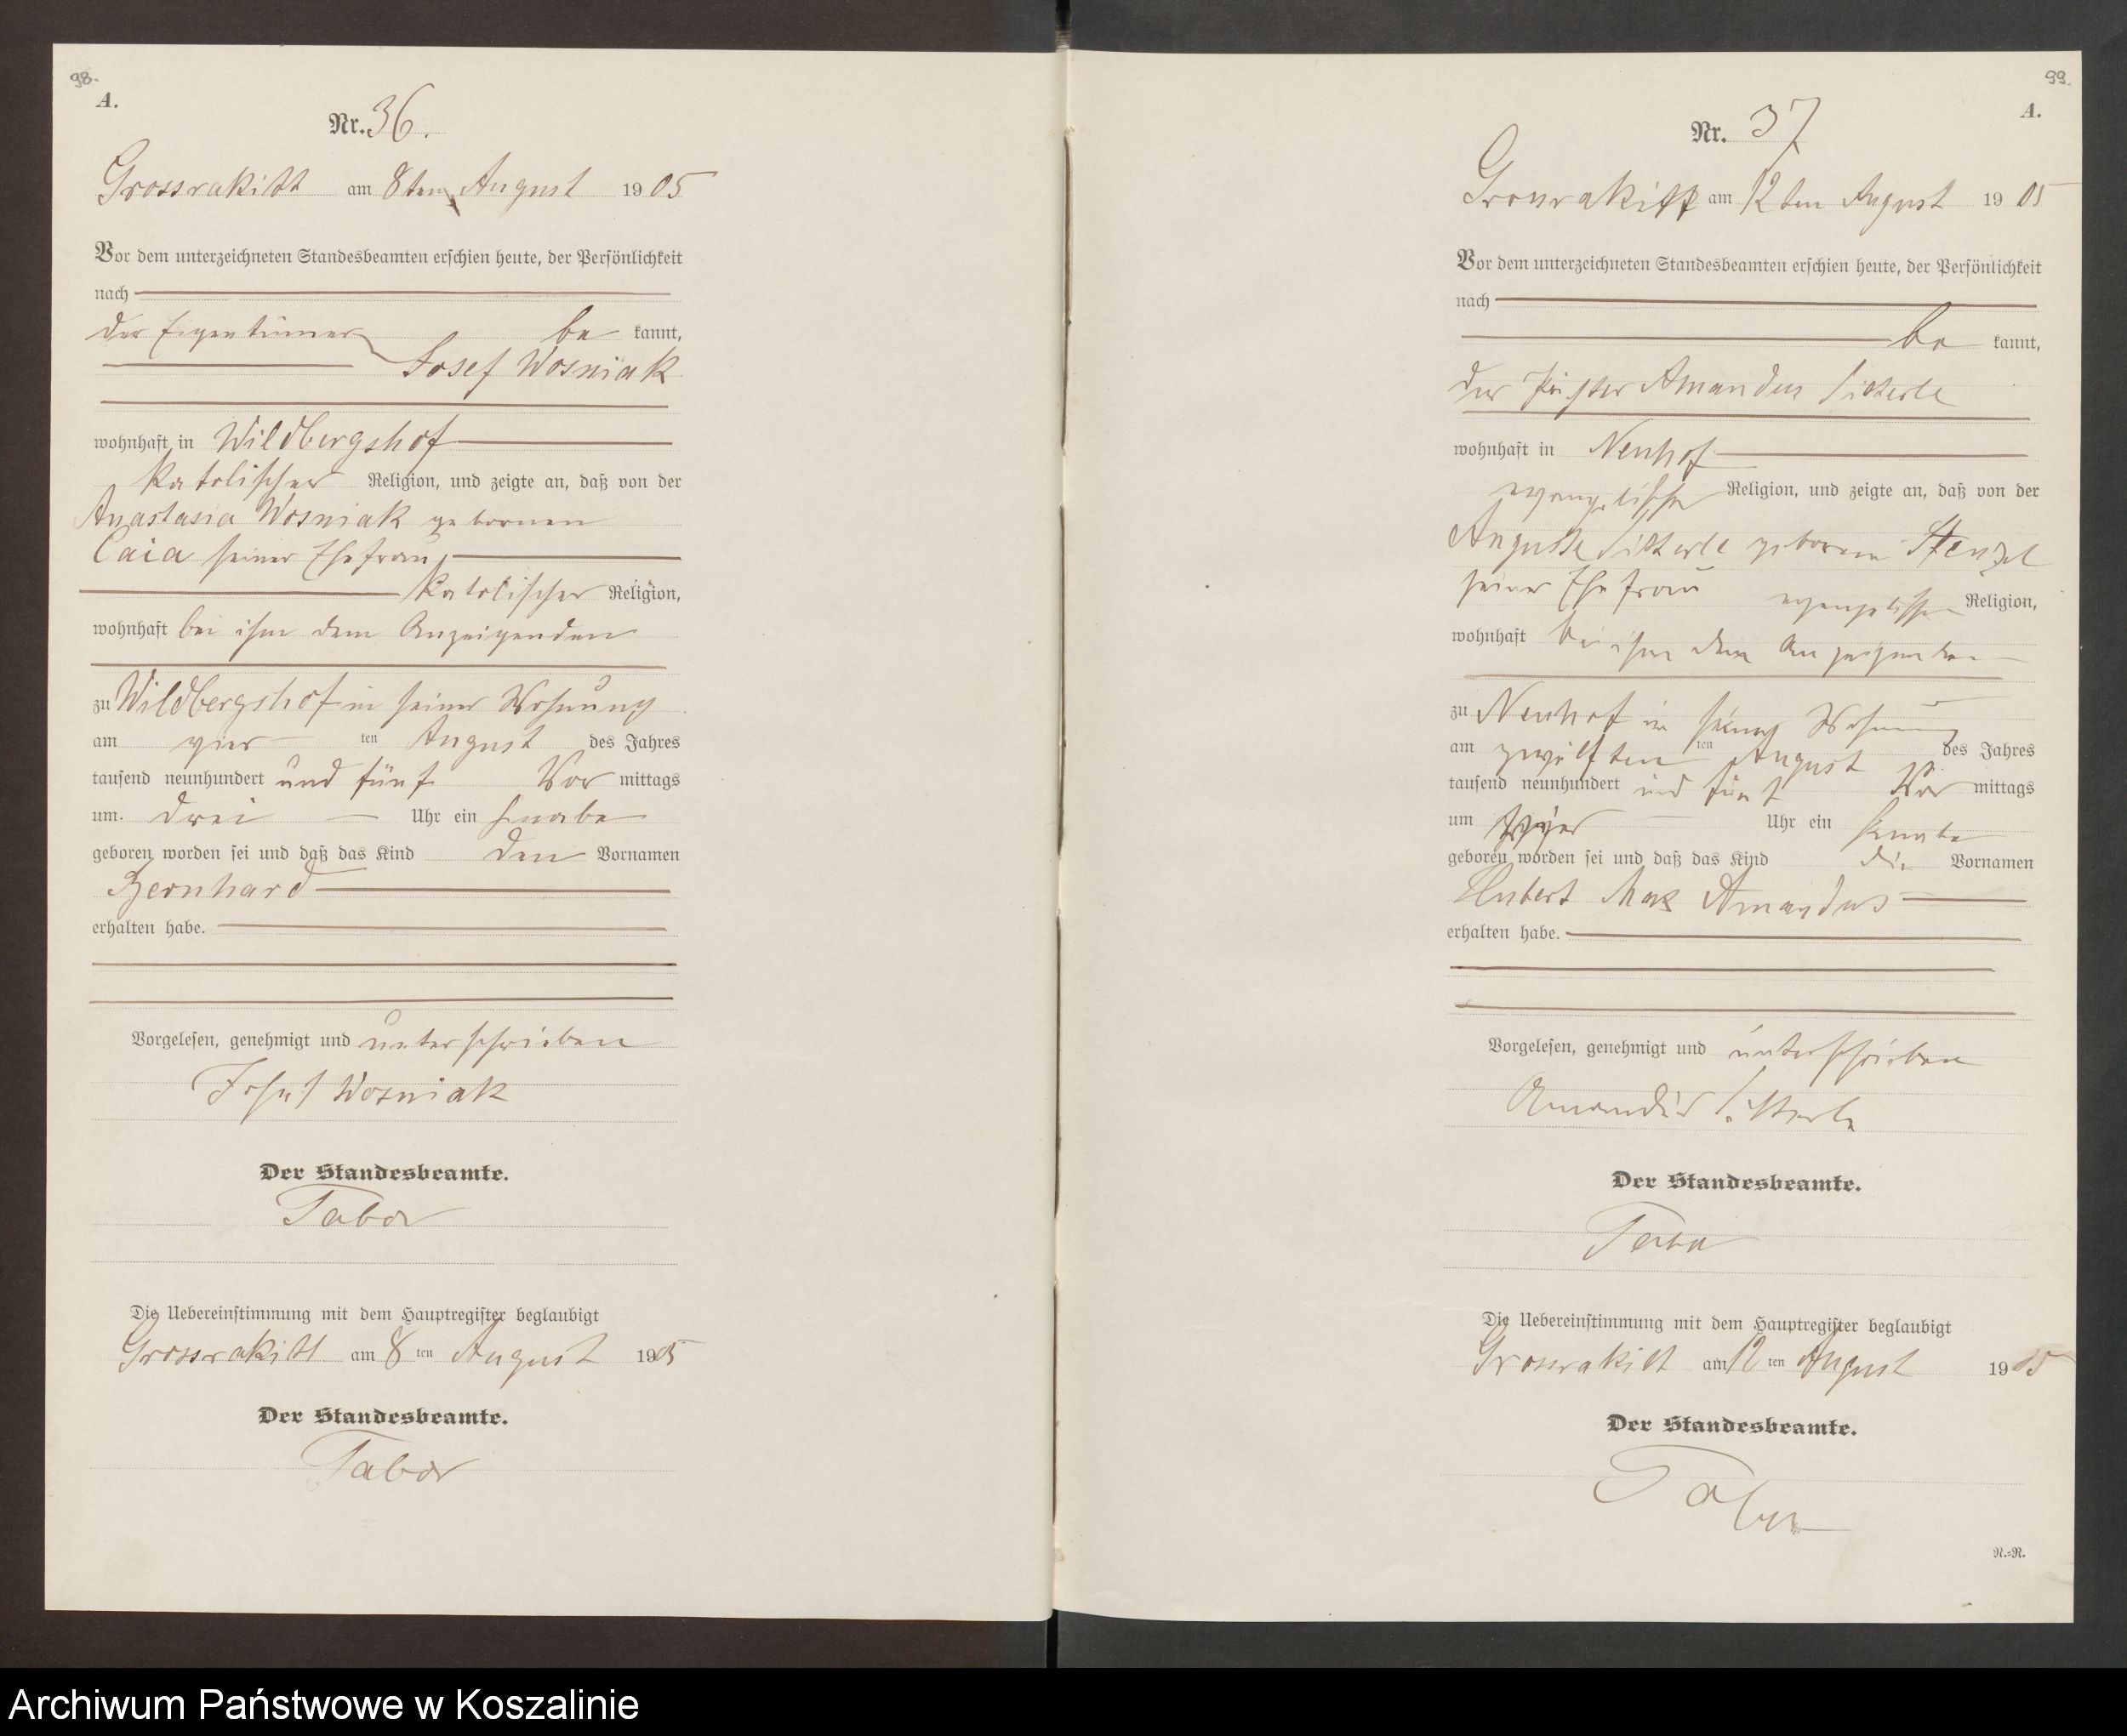 98.
A.
Nr. 36.
Grossrakitt am 8ten August 1905
Vor dem unterzeichneten Standesbeamten erschien heute, der Persönlichkeit
nach
der Eigentümer be kannt,
Josef Wosniak
wohnhaft in Wildbergshof
katolischer Religion, und zeigte an, daß von der
Anastasia Wosniak gebornen
Caia seiner Ehefrau,
katolischer Religion,
wohnhaft bei ihm dem Anzeigenden
zu Wildbergshof in seiner Wohnung
am vier ten August des Jahres
tausend neunhundert und fünf Vor mittags
um drei Uhr ein Knabe
geboren worden sei und daß das Kind den Vornamen
Bernhard
erhalten habe.
Vorgelesen, genehmigt und unterschrieben
Josef Wosniak
Der Standesbeamte.
Tabor
Die Uebereinstimmung mit dem Hauptregister beglaubigt
Grossrakitt am 8 ten August 1905
Der Standesbeamte.
Tabor
99.
A.
Nr. 37
Grossrakitt am 12ten August 1905
Vor dem unterzeichneten Standesbeamten erschien heute, der Persönlichkeit
nach
be kannt,
der Amandus
wohnhaft in Neuhof
evangelischer Religion, und zeigte an, daß von der
Auguste geborene Stenzel
seiner Ehefrau evangelischer Religion,
wohnhaft bei ihm dem Anzeigenden
zu Neuhof in seiner Wohnung
am zwölften ten August des Jahres
tausend neunhundert und fünf Vor mittags
um Uhr ein Knabe
geboren worden sei und daß das Kind die Vornamen
Hubert Max Amandus
erhalten habe.
Vorgelesen, genehmigt und unterschrieben
Amandus
Der Standesbeamte.
Tabor
Die Uebereinstimmung mit dem Hauptregister beglaubigt
Grossrakitt am 12 ten August 1905
Der Standesbeamte.
Tabor
N.=N.
Archiwum Państwowe w Koszalinie